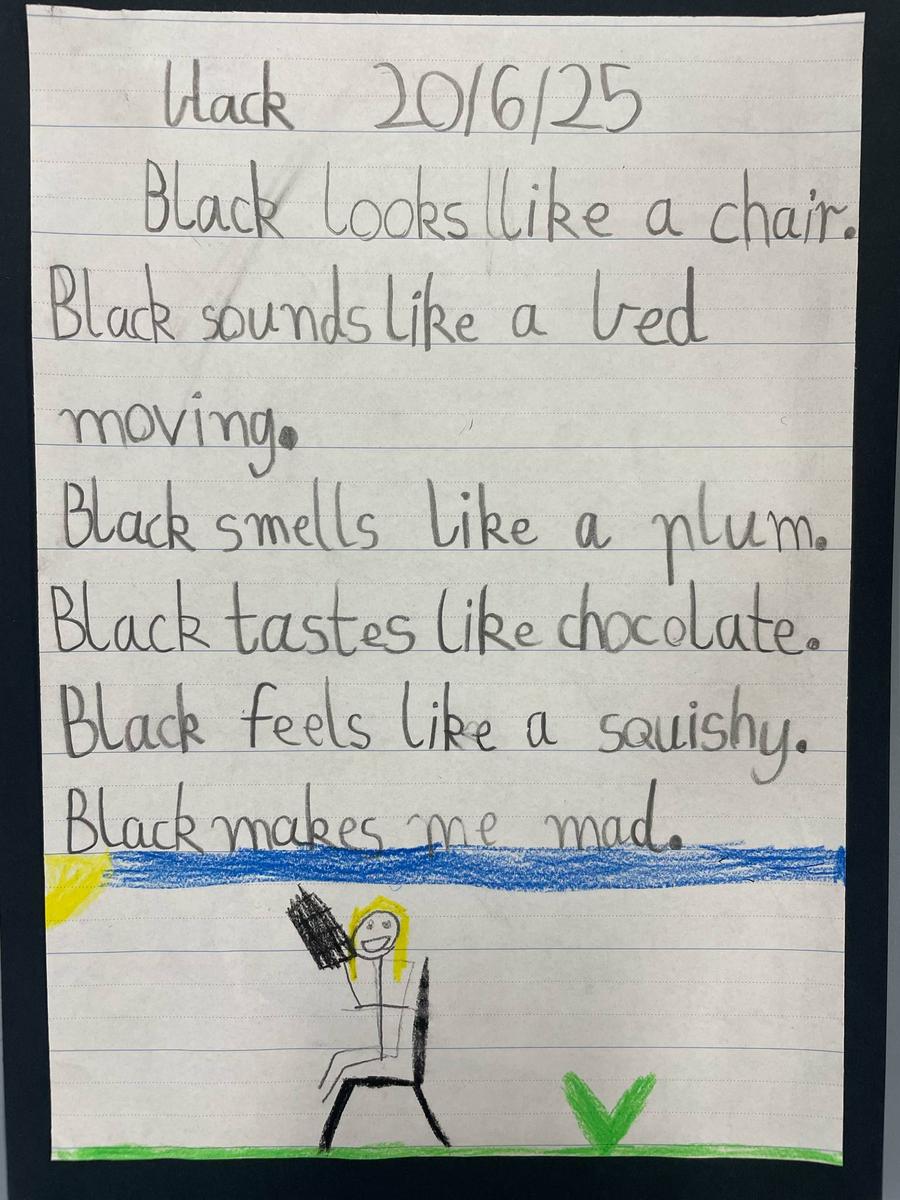 black 20/6/25
Black looks like a chair.
Black sounds like a bed
moving.
Black smells like a plum.
Black tastes like chocolate.
Black feels like a squishy.
Black makes me mad.